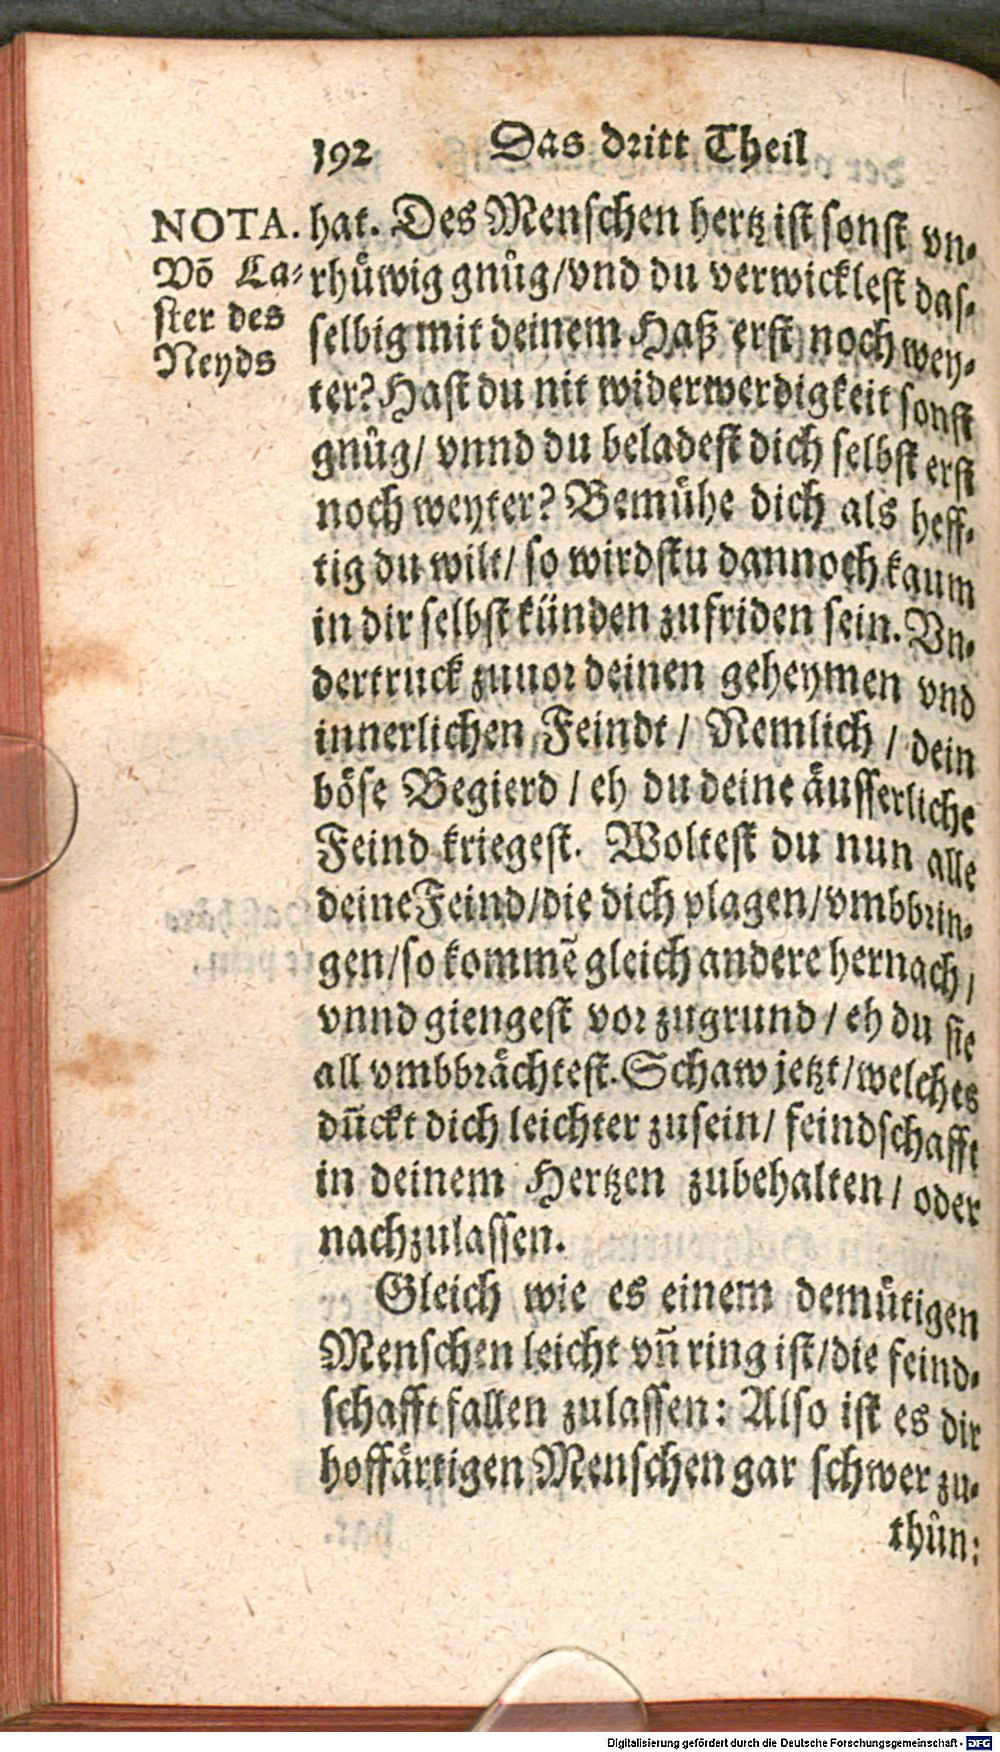 192 Das dritt Theil
NOTA.
Võ La⸗
ster des
Neyds
hat. Des Menschen hertz ist sonst vn⸗
rhüwig gnůg/vnd du verwicklest das⸗
selbig mit deinem Haß erst noch wey⸗
ter? Hast du nit widerwerdigkeit sonst
gnůg/ vnnd du beladest dich selbst erst
noch weyter? Bemühe dich als heff⸗
tig du wilt/ so wirdstu dannoch kaum
in dir selbst künden zufriden sein. Vn⸗
dertruck zuuor deinen geheymen vnd
innerlichen Feindt/ Nemlich/ dein
böse Begierd/ eh du deine äusserliche
Feind kriegest. Woltest du nun alle
deine Feind/die dich plagen/vmbbrin⸗
gen/so kommẽ gleich andere hernach/
vnnd giengest vor zugrund/ eh du sie
all vmbbrächtest. Schaw jetzt/welches
dũckt dich leichter zusein/ feindschafft
in deinem Hertzen zubehalten/ oder
nachzulassen.
Gleich wie es einem demütigen
Menschen leicht vñ ring ist/die feind⸗
schafft fallen zulassen: Also ist es dir
hoffärtigen Menschen gar schwer zu⸗
thůn:
Digitalisierung gefördert durch die Deutsche Forschungsgemeinschaft - DFG